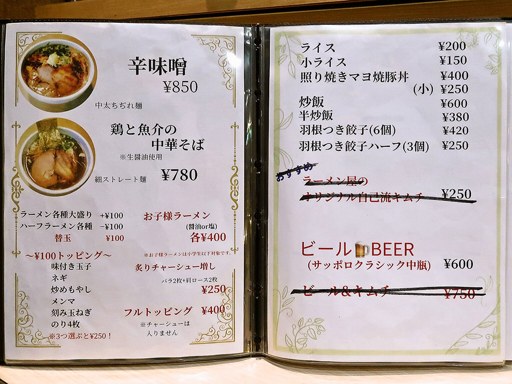 辛味噌
¥850
中太ちぢれ麺
鶏と魚介の
中華そば
※生醤油使用
細ストレート麺 ¥780
ラーメン各種大盛り +¥100
ハーフラーメン各種 −¥100
替玉 ¥100
お子様ラーメン
(醤油or塩)
各¥400
※お子様ラーメンは小学生以下対象です
〜¥100トッピング〜
味付き玉子
ネギ
炒めもやし
メンマ
刻み玉ねぎ
のり4枚
※3つ選ぶと¥250！
炙りチャーシュー増し
バラ2枚+肩ロース2枚
¥250
フルトッピング ¥400
※チャーシューは
入りません
ライス ¥200
小ライス ¥150
照り焼きマヨ焼豚丼 ¥400
(小) ¥250
炒飯 ¥600
半炒飯 ¥380
羽根つき餃子(6個) ¥420
羽根つき餃子ハーフ(3個) ¥250
おすすめ
ラーメン屋の
オリジナル自己流キムチ ¥250
ビール🍺BEER
(サッポロクラシック中瓶) ¥600
ビール&キムチ ¥750